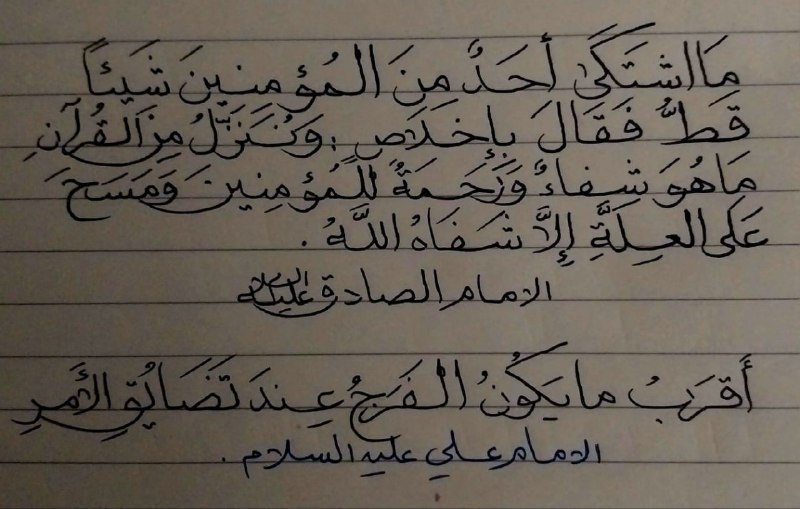 مَا اشتَكَىٰ أَحَدٌ مِنَ المُؤمِنِينَ شَيئاً
قَطُّ فَقَالَ بِإِخلَاصٍ : وَنُنَزِّلُ مِنَ القُرآنِ
مَا هُوَ شِفاءٌ وَرَحمَةٌ لِلمُؤمِنِينَ وَمَسَحَ
عَلَى العِلَّةِ إِلَّا شَفَاهُ اللَّهُ .
الامام الصادق عليه السلام
أَقرَبُ ما يَكُونُ الفَرَجُ عِندَ تَضَايُقِ الأَمرِ
الامام علي عليه السلام .